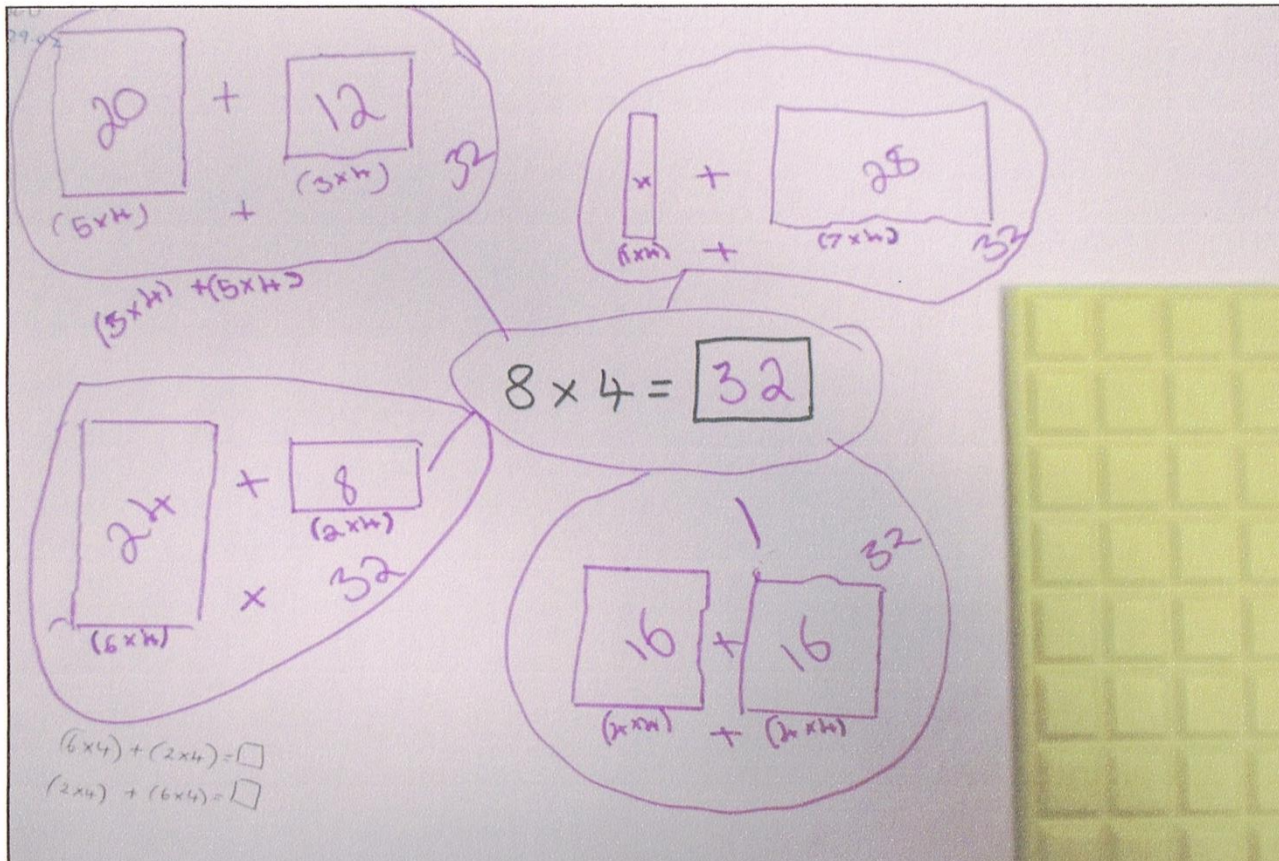 20 + 12
(5×4) + (3×4) 32
(3×4) + (5×4)
4 + 28
(1×4) + (7×4) 32
8 × 4 = 32
24 + 8
(2×4)
(6×4) × 32
32
16 + 16
(4×4) + (4×4)
(6×4) + (2×4) = □
(2×4) + (6×4) = □